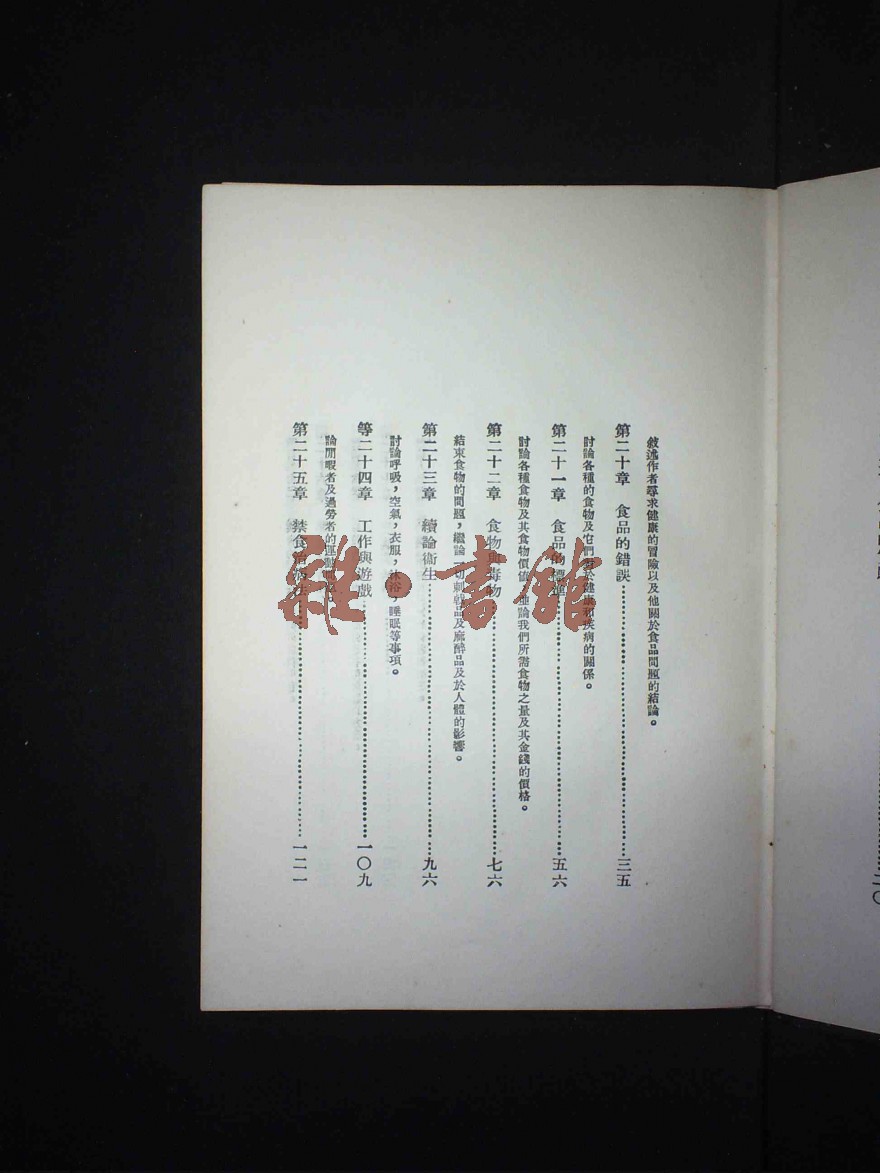 敍述作者尋求健康的冒險以及他關於食品問題的結論。
第二十章 食品的錯誤……三五
討論各種的食物及牠們對於健康和疾病的關係。
第二十一章 食品的標準……五六
討論各種食物及其食物價值，並論我們所需食物之量及其金錢的價格。
第二十二章 食物與毒物……七六
結束食物的問題，繼論一切刺戟品及麻醉品及於人體的影響。
第二十三章 續論衞生……九六
討論呼吸，空氣，衣服，沐浴，睡眠等事項。
等二十四章 工作與遊戲……一〇九
論閒暇者及過勞者的運動
第二十五章 禁食治療法……一二一
雜·書館
二〇